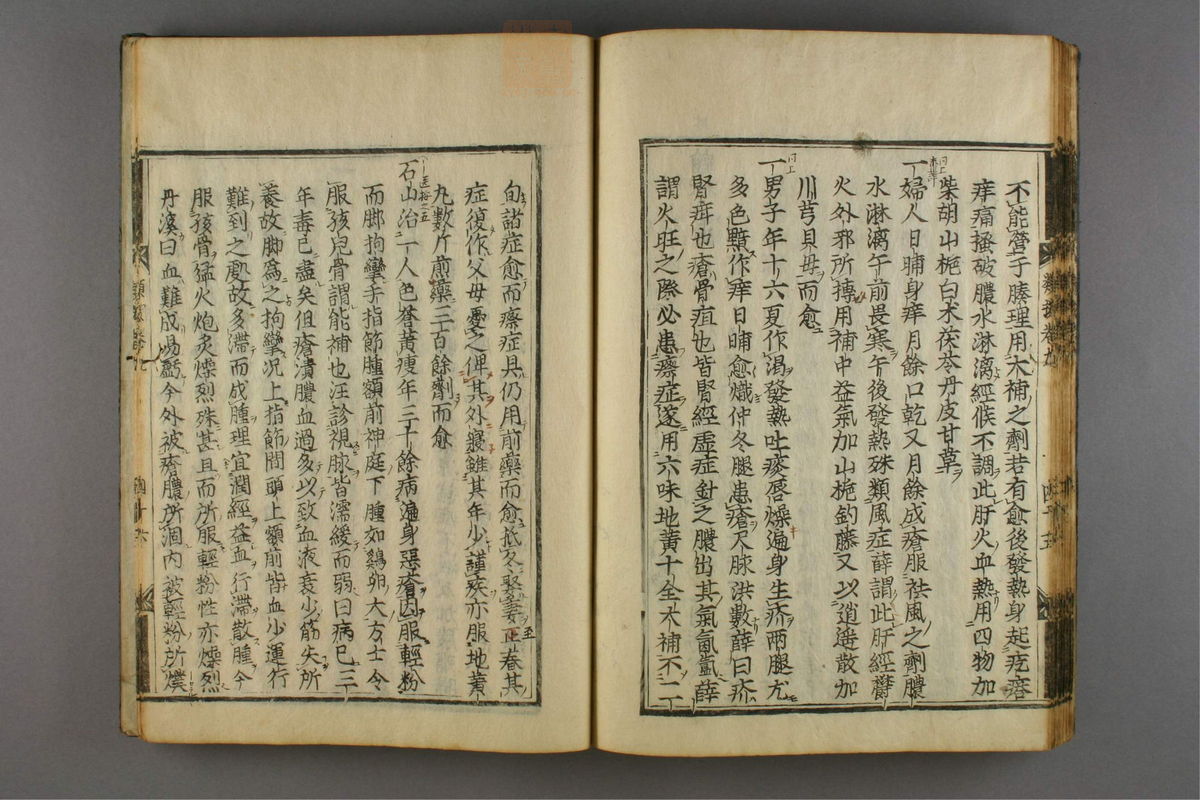 不能營于腠理用木補之劑若有愈後發熱身起疙瘩
痒痛搔破膿水淋漓經候不調此肝火血熱用四物加
柴胡山梔白术茯苓丹皮甘草
同上
一婦人日晡身痒月餘口乾又月餘成瘡服祛風之劑膿
水淋漓午前畏寒午後發熱殊類風症薛謂此肝經鬱
火外邪所搏用補中益氣加山梔釣藤又以逍遥散加
川芎貝母而愈
同上
一男子年十六夏作渴發熱吐痰唇燥遍身生疥兩腿尤
多色黯作痒日晡愈熾仲冬腿患瘡尺脉洪數薛曰疥
腎疳也瘡骨疽也皆腎經虚症針之膿出其氣氤氳薛
謂火旺之際必患瘵症遂用六味地黄十全木補不二
旬諸症愈而瘵症具仍用前藥而愈抵冬娶妻至春其
症復作父母憂之俾其外寝雖其年少謹疾亦服地黄
丸數斤煎藥三百餘劑而愈
石山治一人色蒼黄瘦年三十餘病遍身惡瘡因服輕粉
而脚拘攣手指節腫額前神庭下腫如鷄卵大方士令
服孩兒骨謂能補也汪診視脉皆濡緩而弱曰病已三
年毒已盡矣但瘡潰膿血過多以致血液衰少筋失所
養故脚爲之拘攣况上指節間頭上額前皆血少運行
難到之處故多滯而成腫理宜潤經益血行滯散腫今
服孩骨猛火炮炙燥烈殊甚且而所服輕粉性亦燥烈
丹溪曰血難成易虧今外被瘡膿所涸内被輕粉所燥